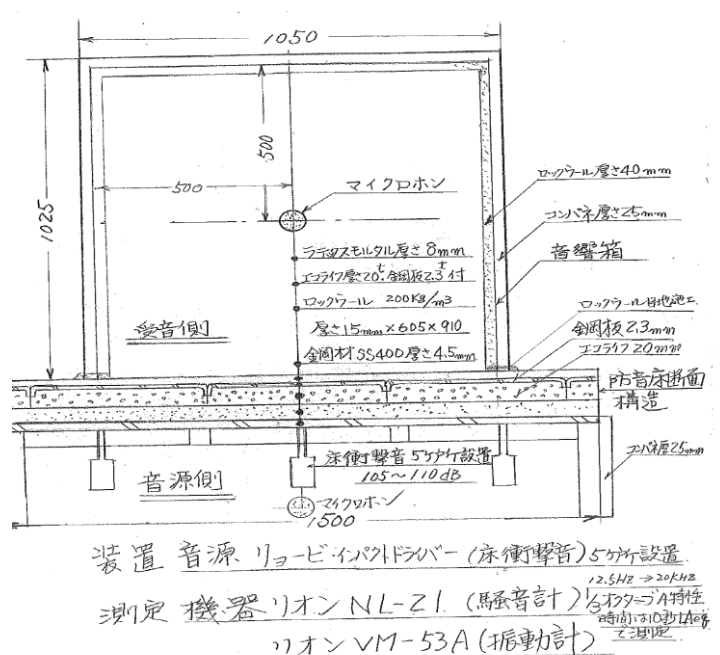 1050
500
500
1025
マイクロホン
ロックウール厚さ40mm
コンパネ厚さ25mm
音響箱
ラテックスモルタル厚さ8mm
エコライフ厚さ20t.金岡板2.3t付
ロックウール 200KB/m3
厚さ15mm×605×910
金岡材SS400厚さ4.5mm
受音側
ロックウール目地施工.
金岡板2.3mm
エコライフ20mm
防音床断面
構造
コンパネ厚25mm
床衝撃音5ヶ所設置
105〜110dB
音源側
マイクロホン
1500
装置 音源 リョービ・インパクトドライバー(床衝撃音)5ヶ所設置.
測定機器 リオンNL-21(騒音計)
12.5HZ→20KHZ
1/3オクターブA特性
時間は10秒LAeq
で測定
リオンVM-53A(振動計)